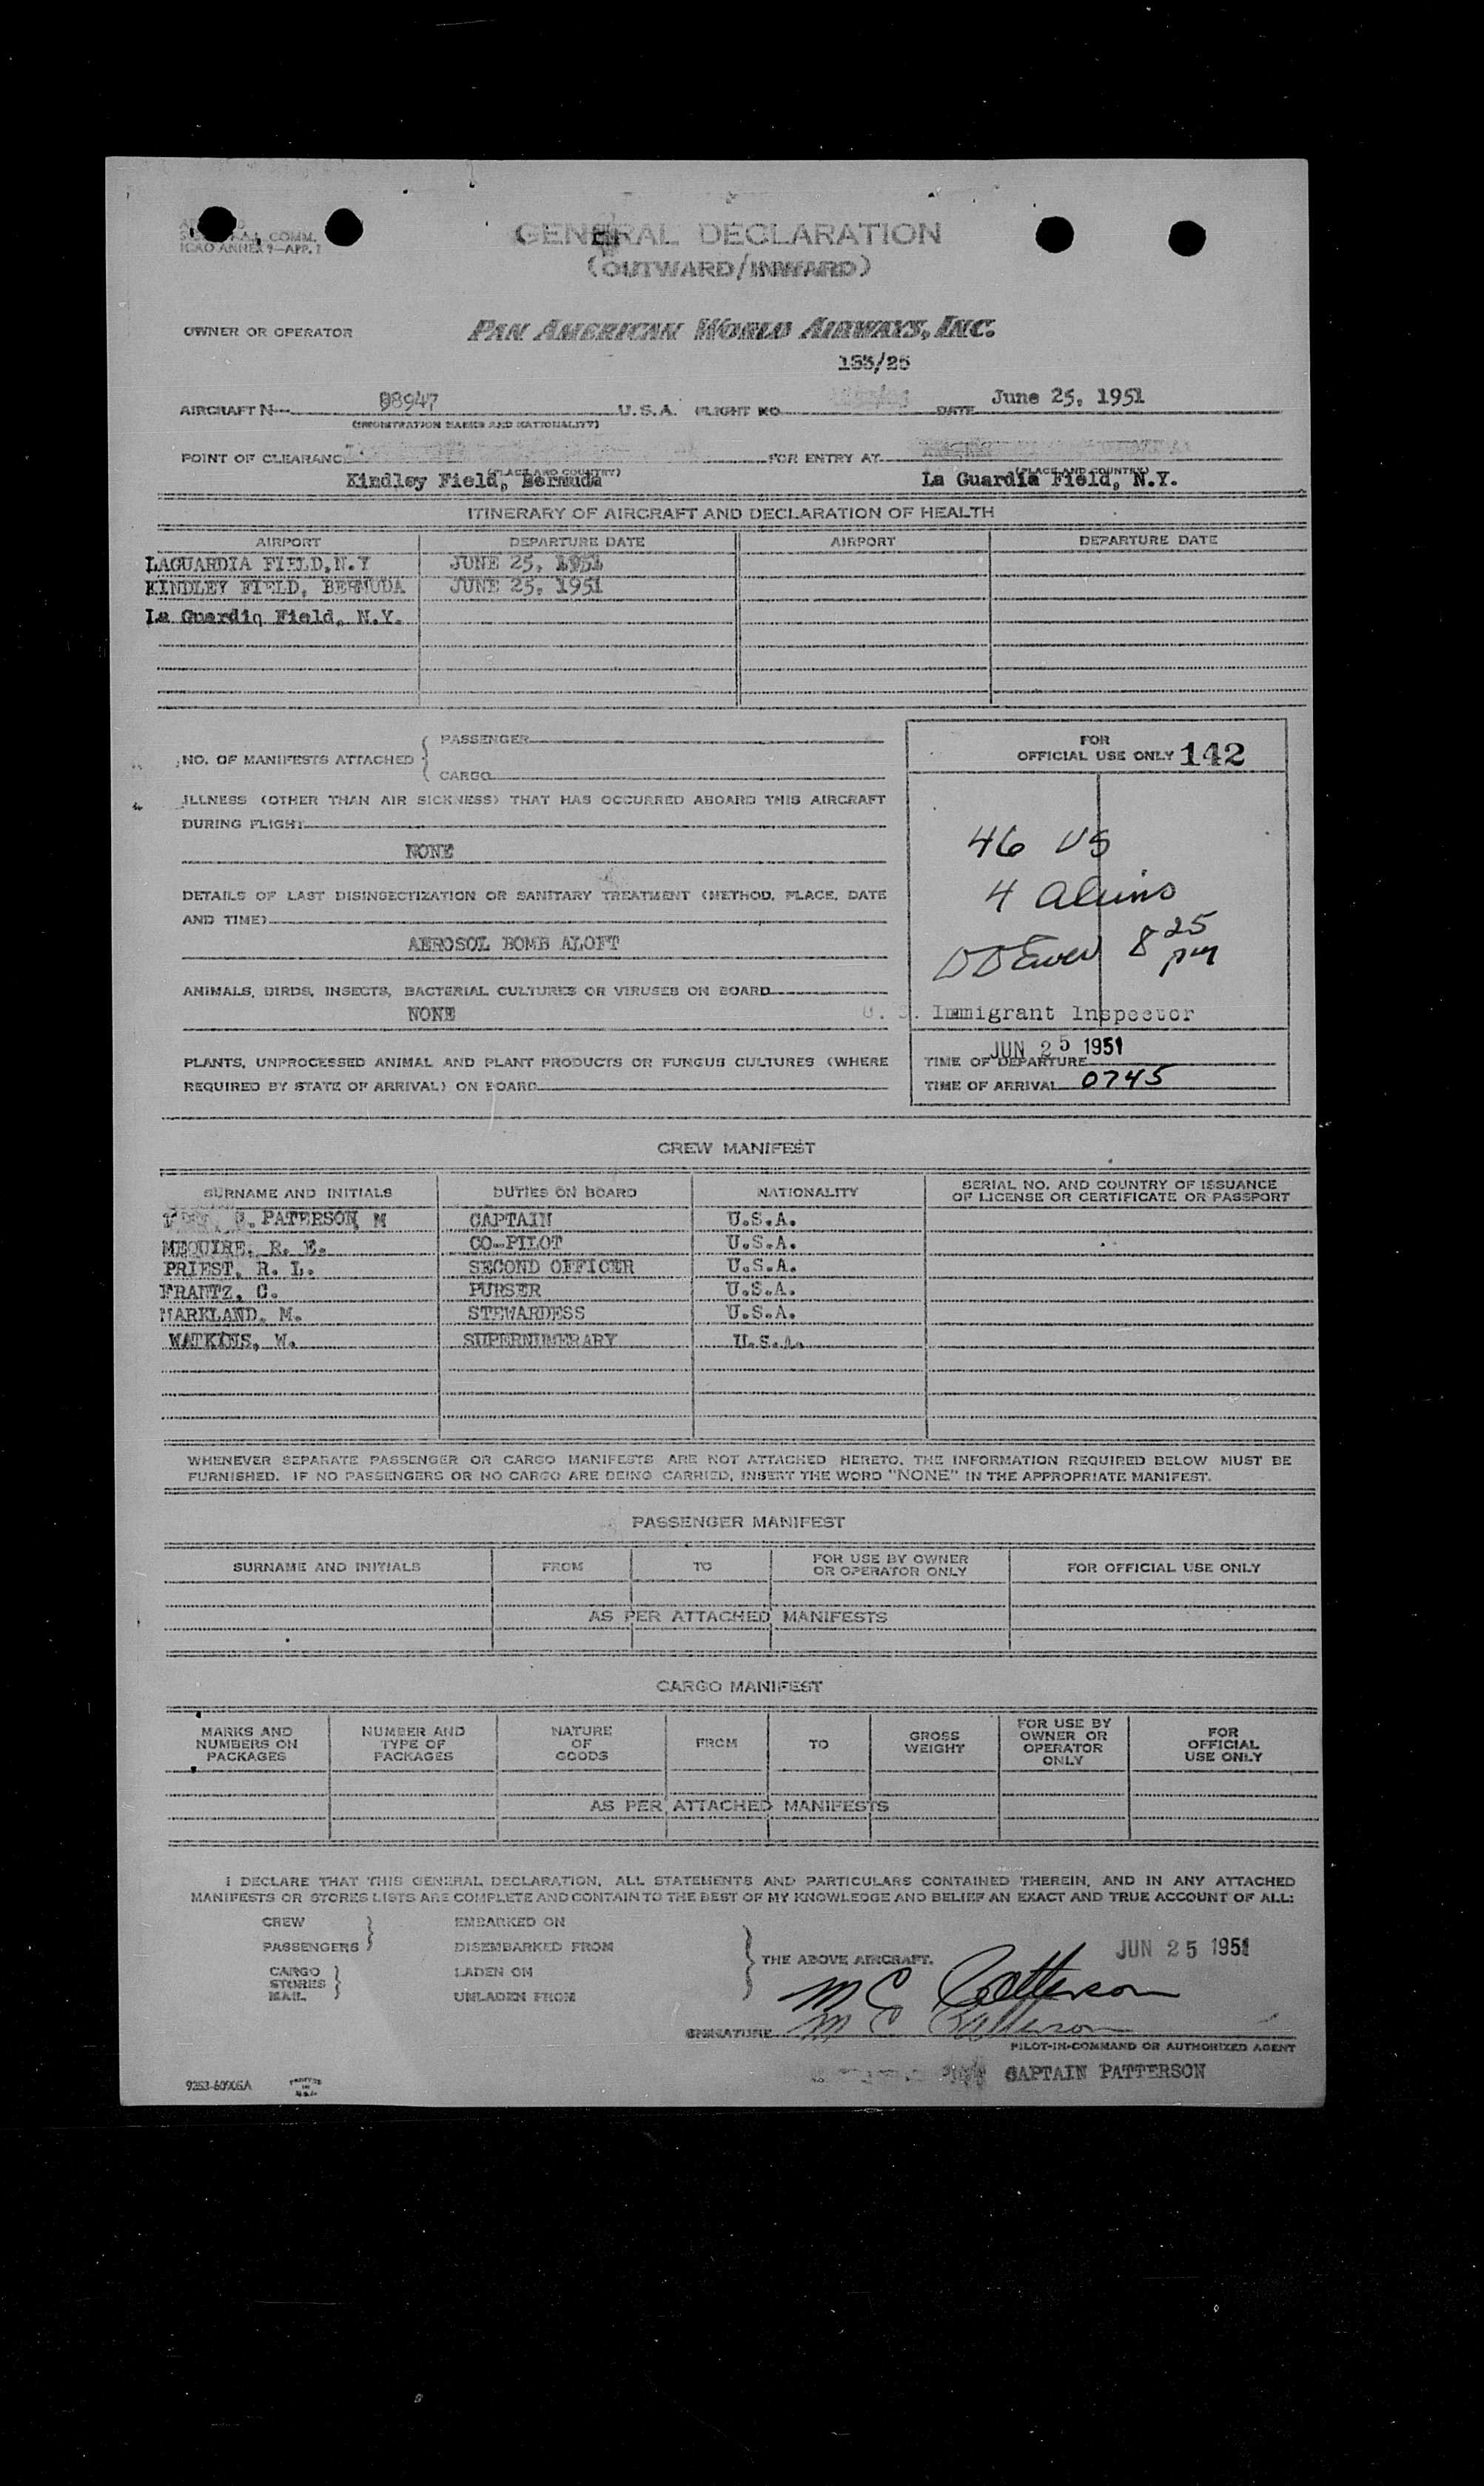 COMM.
ICAO ANNEX 9—APP. 1
GENERAL DECLARATION
(OUTWARD/INWARD)
OWNER OR OPERATOR PAN AMERICAN WORLD AIRWAYS, INC.
153/25
AIRCRAFT N— 98947 U.S.A. FLIGHT NO. DATE June 25, 1951
(REGISTRATION MARKS AND NATIONALITY)
POINT OF CLEARANCE FOR ENTRY AT
(PLACE AND COUNTRY) (PLACE AND COUNTRY)
Kindley Field, Bermuda La Guardia Field, N.Y.
ITINERARY OF AIRCRAFT AND DECLARATION OF HEALTH
AIRPORT DEPARTURE DATE AIRPORT DEPARTURE DATE
LAGUARDIA FIELD,N.Y JUNE 25, 1951
KINDLEY FIELD, BERMUDA JUNE 25, 1951
La Guardia Field, N.Y.
NO. OF MANIFESTS ATTACHED { PASSENGER
CARGO
ILLNESS (OTHER THAN AIR SICKNESS) THAT HAS OCCURRED ABOARD THIS AIRCRAFT
DURING FLIGHT
NONE
DETAILS OF LAST DISINSECTIZATION OR SANITARY TREATMENT (METHOD, PLACE, DATE
AND TIME)
AEROSOL BOMB ALOFT
ANIMALS, BIRDS, INSECTS, BACTERIAL CULTURES OR VIRUSES ON BOARD
NONE
PLANTS, UNPROCESSED ANIMAL AND PLANT PRODUCTS OR FUNGUS CULTURES (WHERE
REQUIRED BY STATE OF ARRIVAL) ON BOARD
FOR
OFFICIAL USE ONLY 142
46 US
4 Aliens
8 25 pm
U. S. Immigrant Inspector
JUN 25 1951
TIME OF DEPARTURE
TIME OF ARRIVAL 0745
CREW MANIFEST
SURNAME AND INITIALS DUTIES ON BOARD NATIONALITY SERIAL NO. AND COUNTRY OF ISSUANCE
OF LICENSE OR CERTIFICATE OR PASSPORT
PATERSON, M CAPTAIN U.S.A.
MEQUIRE, R. E. CO-PILOT U.S.A.
PRIEST, R. L. SECOND OFFICER U.S.A.
FRANTZ, C. PURSER U.S.A.
MARKLAND, M. STEWARDESS U.S.A.
WATKINS, W. SUPERNUMERARY U.S.A.
WHENEVER SEPARATE PASSENGER OR CARGO MANIFESTS ARE NOT ATTACHED HERETO, THE INFORMATION REQUIRED BELOW MUST BE
FURNISHED. IF NO PASSENGERS OR NO CARGO ARE BEING CARRIED, INSERT THE WORD "NONE" IN THE APPROPRIATE MANIFEST.
PASSENGER MANIFEST
SURNAME AND INITIALS FROM TO FOR USE BY OWNER
OR OPERATOR ONLY FOR OFFICIAL USE ONLY
AS PER ATTACHED MANIFESTS
CARGO MANIFEST
MARKS AND
NUMBERS ON
PACKAGES
NUMBER AND
TYPE OF
PACKAGES
NATURE
OF
GOODS
FROM
TO
GROSS
WEIGHT
FOR USE BY
OWNER OR
OPERATOR
ONLY
FOR
OFFICIAL
USE ONLY
AS PER ATTACHED MANIFESTS
I DECLARE THAT THIS GENERAL DECLARATION, ALL STATEMENTS AND PARTICULARS CONTAINED THEREIN, AND IN ANY ATTACHED
MANIFESTS OR STORES LISTS ARE COMPLETE AND CONTAIN TO THE BEST OF MY KNOWLEDGE AND BELIEF AN EXACT AND TRUE ACCOUNT OF ALL:
CREW EMBARKED ON
PASSENGERS } DISEMBARKED FROM
CARGO LADEN ON
STORES }
MAIL UNLADEN FROM
} THE ABOVE AIRCRAFT.
JUN 25 1951
M C Patterson
SIGNATURE M C Patterson
PILOT-IN-COMMAND OR AUTHORIZED AGENT
CAPTAIN PATTERSON
9253-60905A PRINTED
IN
U.S.A.